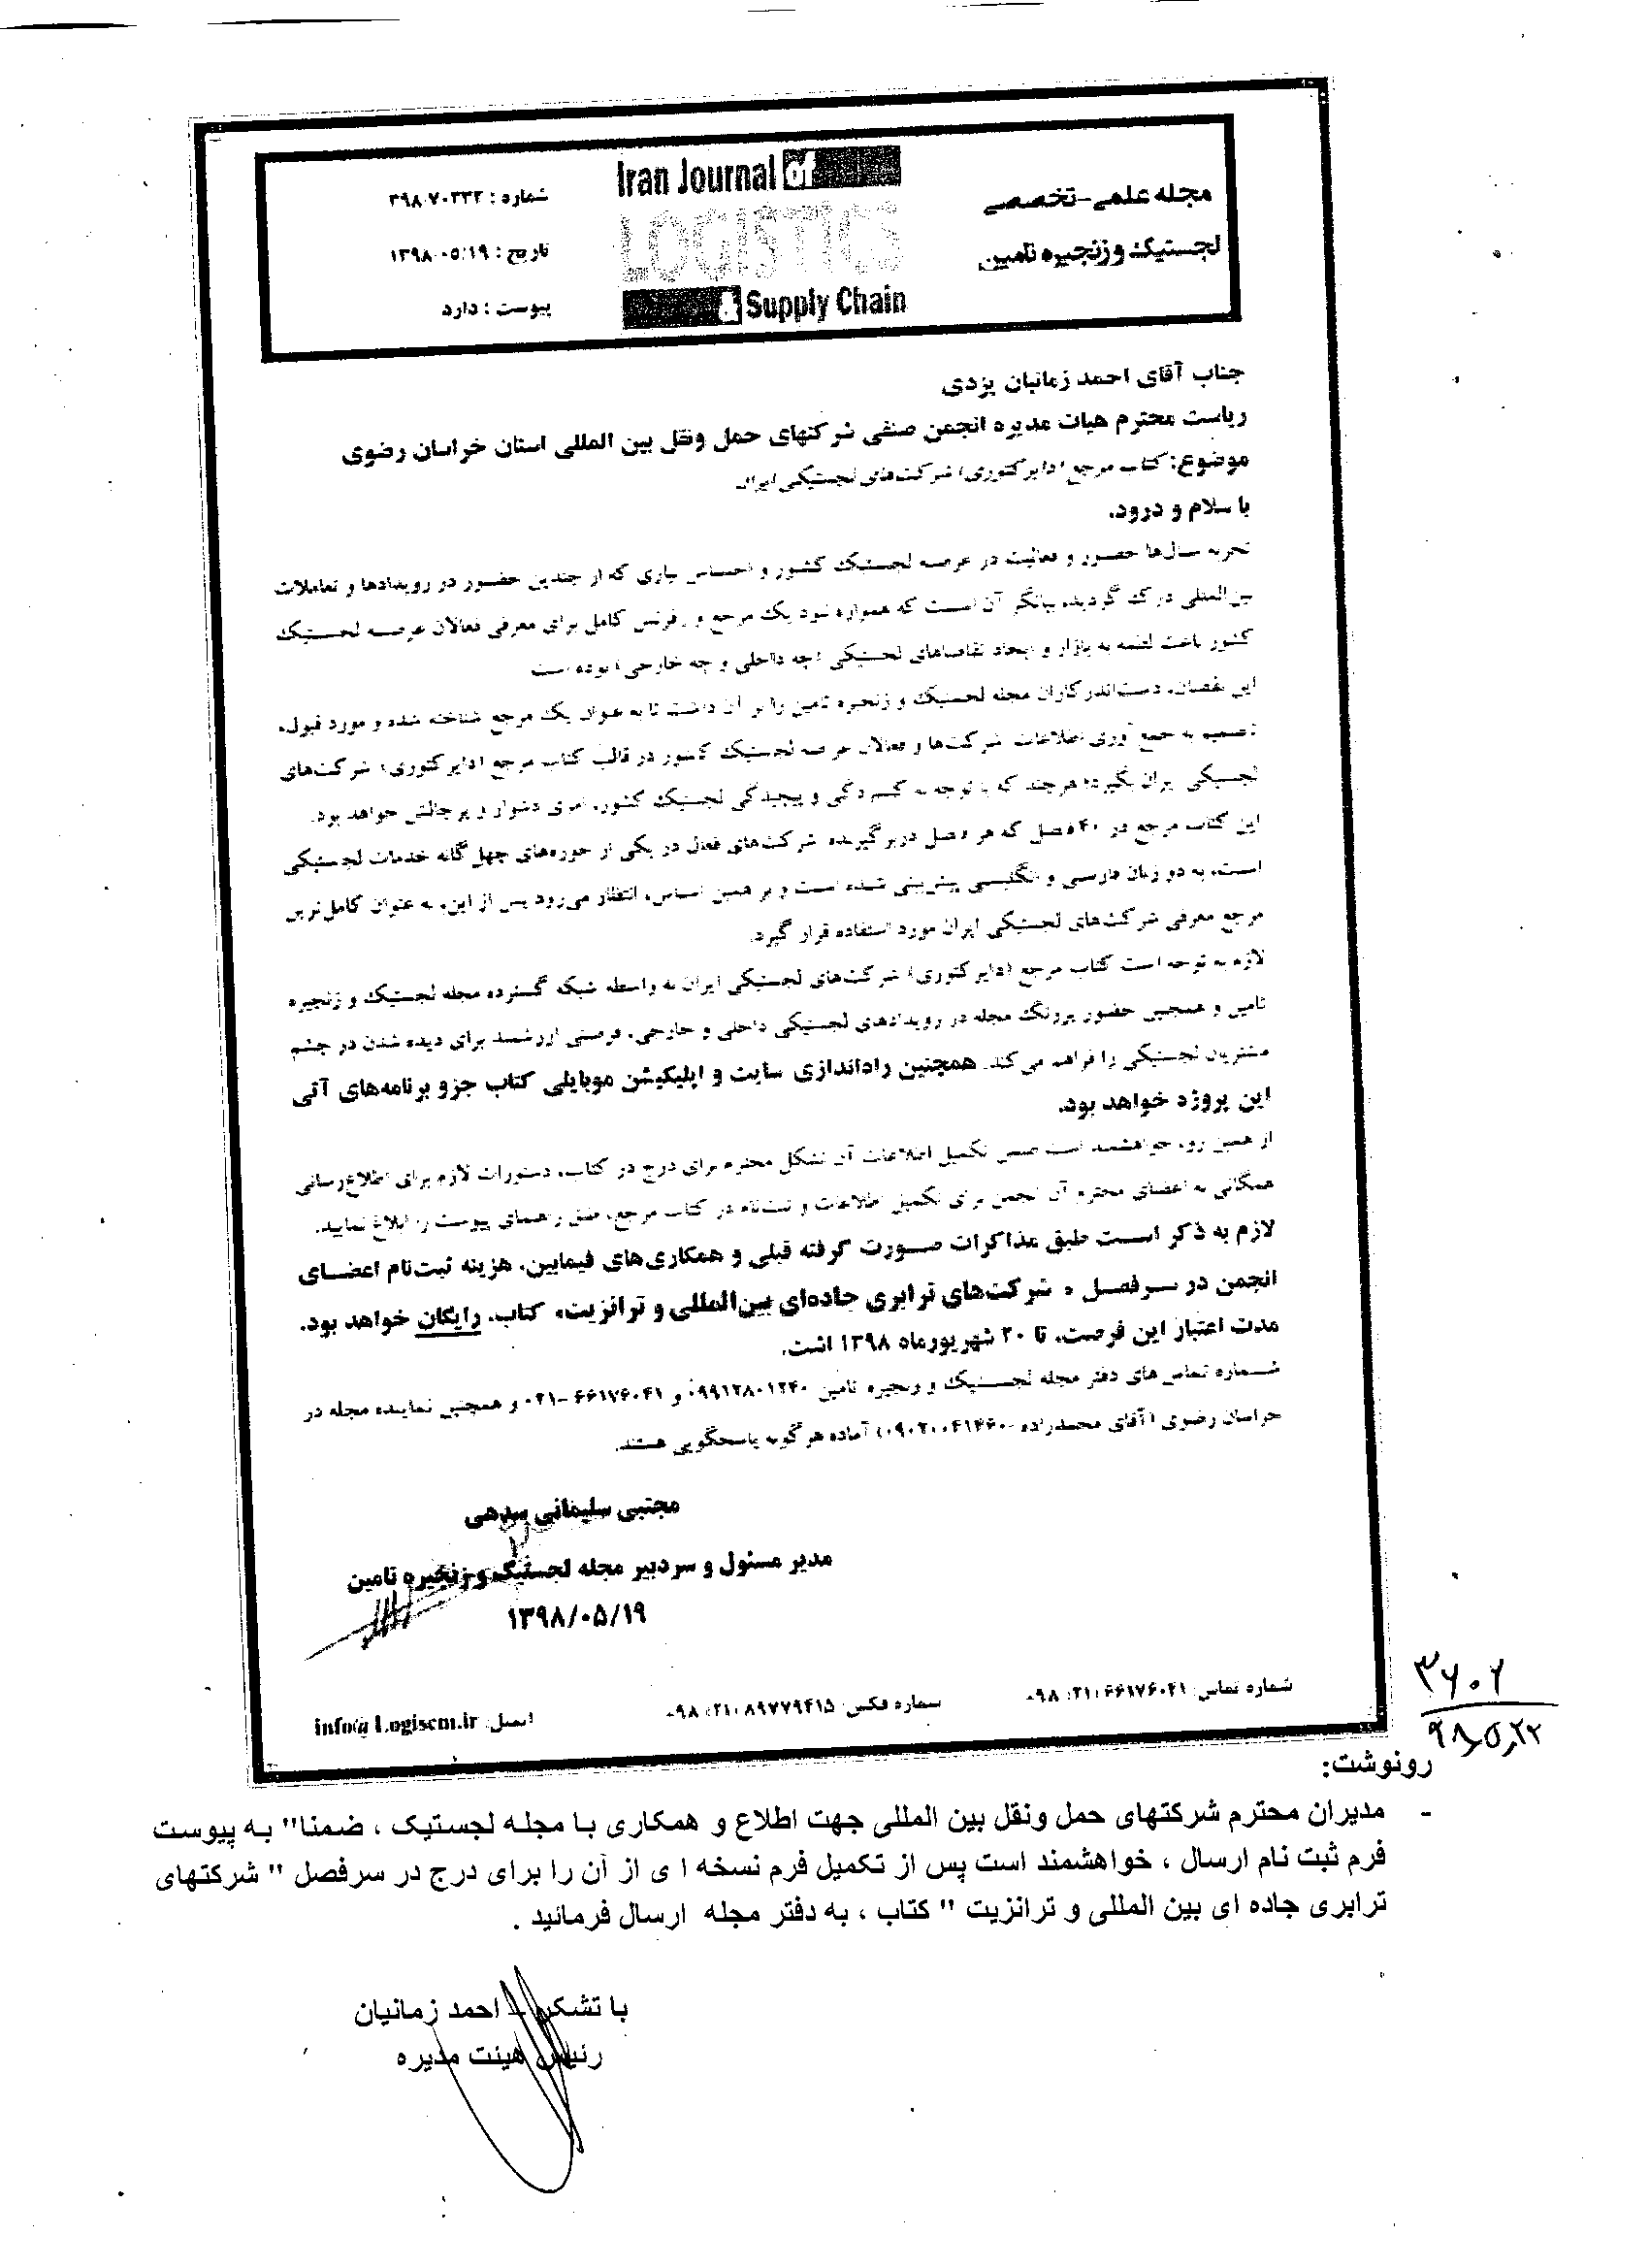 مجله علمی-تخصصی
لجستیک و زنجیره تامین
Iran Journal of
LOGISTICS
& Supply Chain
شماره : ۳۹۸۰۷۰۳۳۲
تاریخ : ۱۳۹۸۰۰۵/۱۹
پیوست : دارد
جناب آقای احمد زمانیان یزدی
ریاست محترم هیات مدیره انجمن صنفی شرکتهای حمل ونقل بین المللی استان خراسان رضوی
موضوع: کتاب مرجع (دایرکتوری) شرکت‌های لجستیکی ایران
با سلام و درود.
تجربه سال‌ها حضور و فعالیت در عرصه لجستیک کشور و احساس نیازی که از چندین حضور در رویدادها و تعاملات
بین‌المللی درک گردیده بیانگر آن است که همواره نبود یک مرجع و رفرنس کامل برای معرفی فعالان عرصه لجستیک
کشور باعث لطمه به بازار و ایجاد تقاضاهای لجستیکی (چه داخلی و چه خارجی) بوده است
این نقصان، دست‌اندرکاران مجله لجستیک و زنجیره تامین را بر آن داشت تا به عنوان یک مرجع شناخته شده و مورد قبول،
تصمیم به جمع آوری اطلاعات شرکت‌ها و فعالان عرصه لجستیک کشور در قالب کتاب مرجع (دایرکتوری) شرکت‌های
لجستیکی ایران بگیرد؛ هرچند که با توجه به گستردگی و پیچیدگی لجستیک کشور، امری دشوار و پرچالش خواهد بود.
این کتاب مرجع در ۴۰ فصل که هر فصل دربرگیرنده شرکت‌های فعال در یکی از حوزه‌های چهل گانه خدمات لجستیکی
است، به دو زبان فارسی و انگلیسی پیش‌بینی شده است و بر همین اساس، انتظار می‌رود پس از این، به عنوان کامل‌ترین
مرجع معرفی شرکت‌های لجستیکی ایران مورد استفاده قرار گیرد.
لازم به توجه است کتاب مرجع (دایرکتوری) شرکت‌های لجستیکی ایران به واسطه شبکه گسترده مجله لجستیک و زنجیره
تامین و همچنین حضور پررنگ مجله در رویدادهای لجستیکی داخلی و خارجی، فرصتی ارزشمند برای دیده شدن در چشم
مشتریان لجستیکی را فراهم می‌کند. همچنین راه‌اندازی سایت و اپلیکیشن موبایلی کتاب جزو برنامه‌های آتی
این پروژه خواهد بود.
از همین رو، خواهشمند است ضمن تکمیل اطلاعات آن تشکل محترم برای درج در کتاب، دستورات لازم برای اطلاع‌رسانی
همگانی به اعضای محترم آن انجمن برای تکمیل اطلاعات و ثبت‌نام در کتاب مرجع، طبق راهنمای پیوست را ابلاغ نمایید.
لازم به ذکر است طبق مذاکرات صورت گرفته قبلی و همکاری‌های فیمابین، هزینه ثبت‌نام اعضای
انجمن در سرفصل « شرکت‌های ترابری جاده‌ای بین‌المللی و ترانزیت» کتاب، رایگان خواهد بود.
مدت اعتبار این فرصت، تا ۲۰ شهریورماه ۱۳۹۸ است.
شماره تماس های دفتر مجله لجستیک و زنجیره تامین ۰۹۹۱۲۸۰۱۲۴۰ و ۶۶۱۷۶۰۴۱-۰۲۱ و همچنین نماینده مجله در
خراسان رضوی (آقای محمدزاده -۰۹۰۲۰۰۴۱۴۶۰) آماده هرگونه پاسخگویی هستند.
مجتبی سلیمانی سدهی
مدیر مسئول و سردبیر مجله لجستیک و زنجیره تامین
۱۳۹۸/۰۵/۱۹
شماره تماس: ۶۶۱۷۶۰۴۱ (۲۱) ۰۹۸
شماره فکس: ۸۹۷۷۹۴۱۵ (۲۱) ۰۹۸
ایمیل: info@Logiscm.ir
۳۶۰۲
۹۸،۵،۲۲
رونوشت:
- مدیران محترم شرکتهای حمل ونقل بین المللی جهت اطلاع و همکاری با مجله لجستیک ، ضمنا" به پیوست
فرم ثبت نام ارسال ، خواهشمند است پس از تکمیل فرم نسخه ا ی از آن را برای درج در سرفصل " شرکتهای
ترابری جاده ای بین المللی و ترانزیت " کتاب ، به دفتر مجله ارسال فرمائید .
با تشکر – احمد زمانیان
رئیس هیئت مدیره